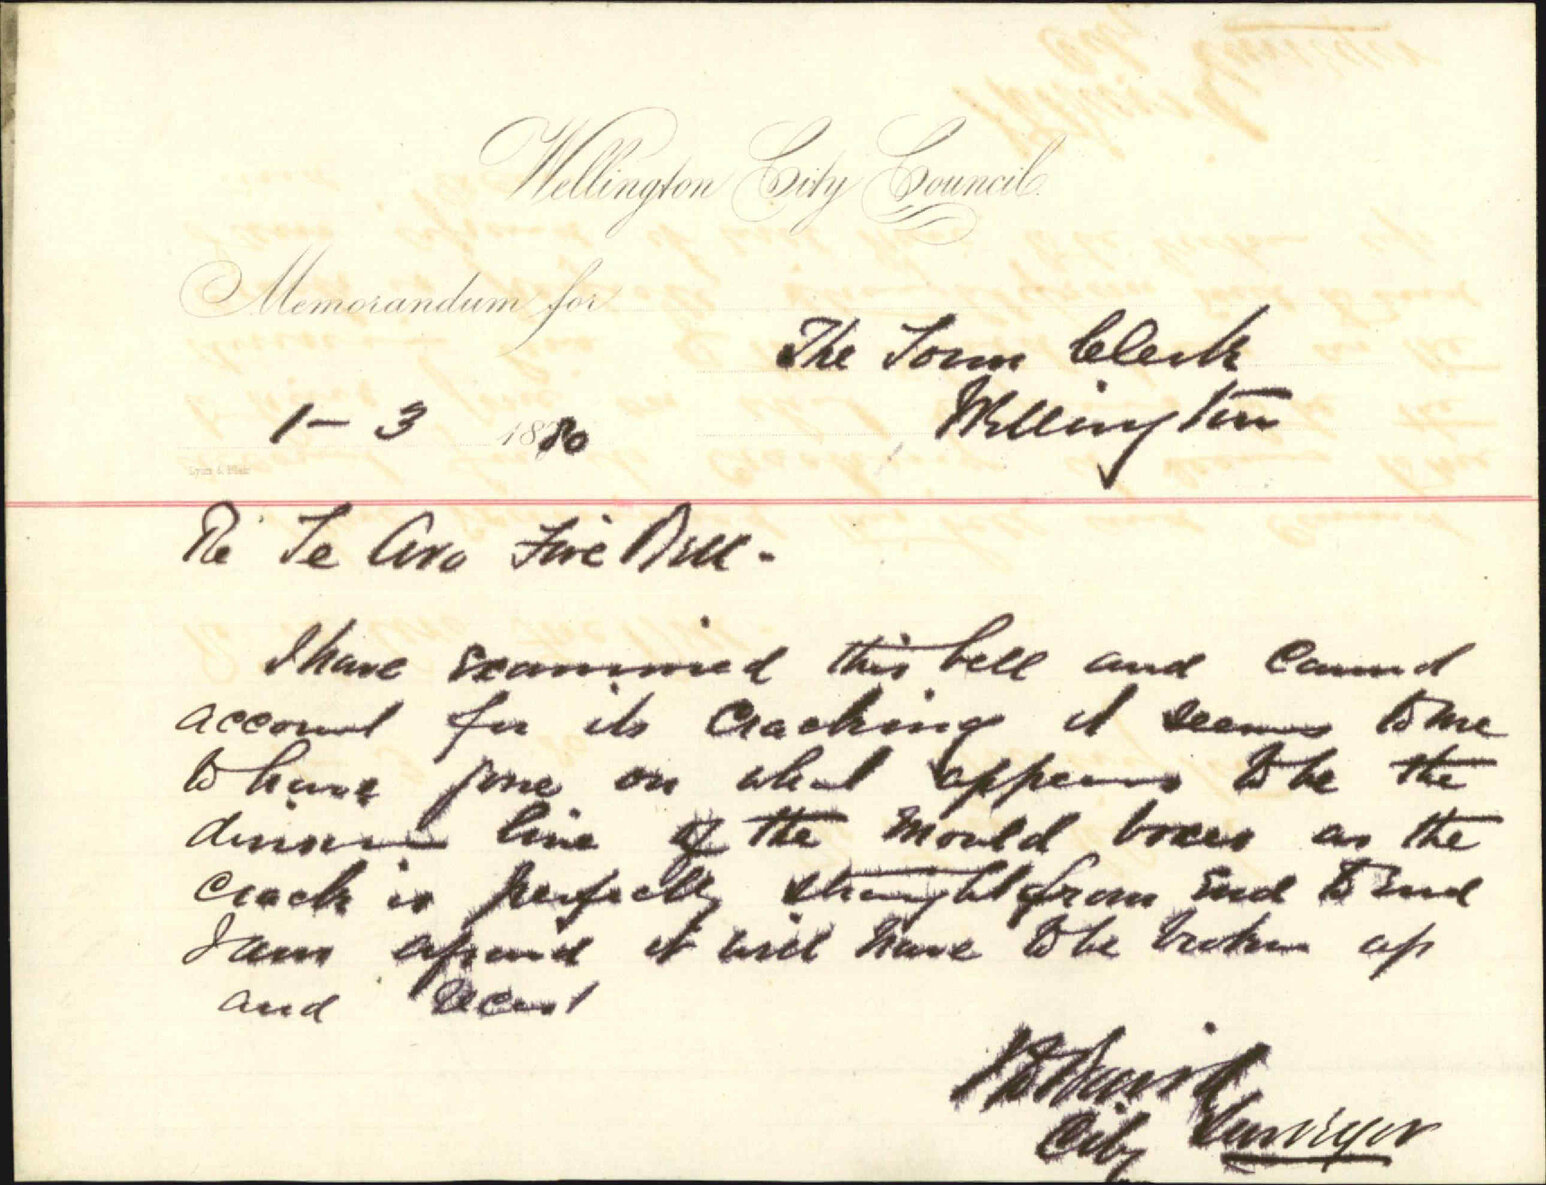 Wellington City Council.
Memorandum for
The Town Clerk
Wellington
1-3 1880
Lyon & Blair
Re Te Aro Fire Bell -
I have examined this bell and cannot
account for its Cracking it seems to me
to have gone on what appears to be the
division line of the mould boxes as the
crack is perfectly straight from End to End
I am afraid it will have to be broken up
and recast
Baird
City Surveyor